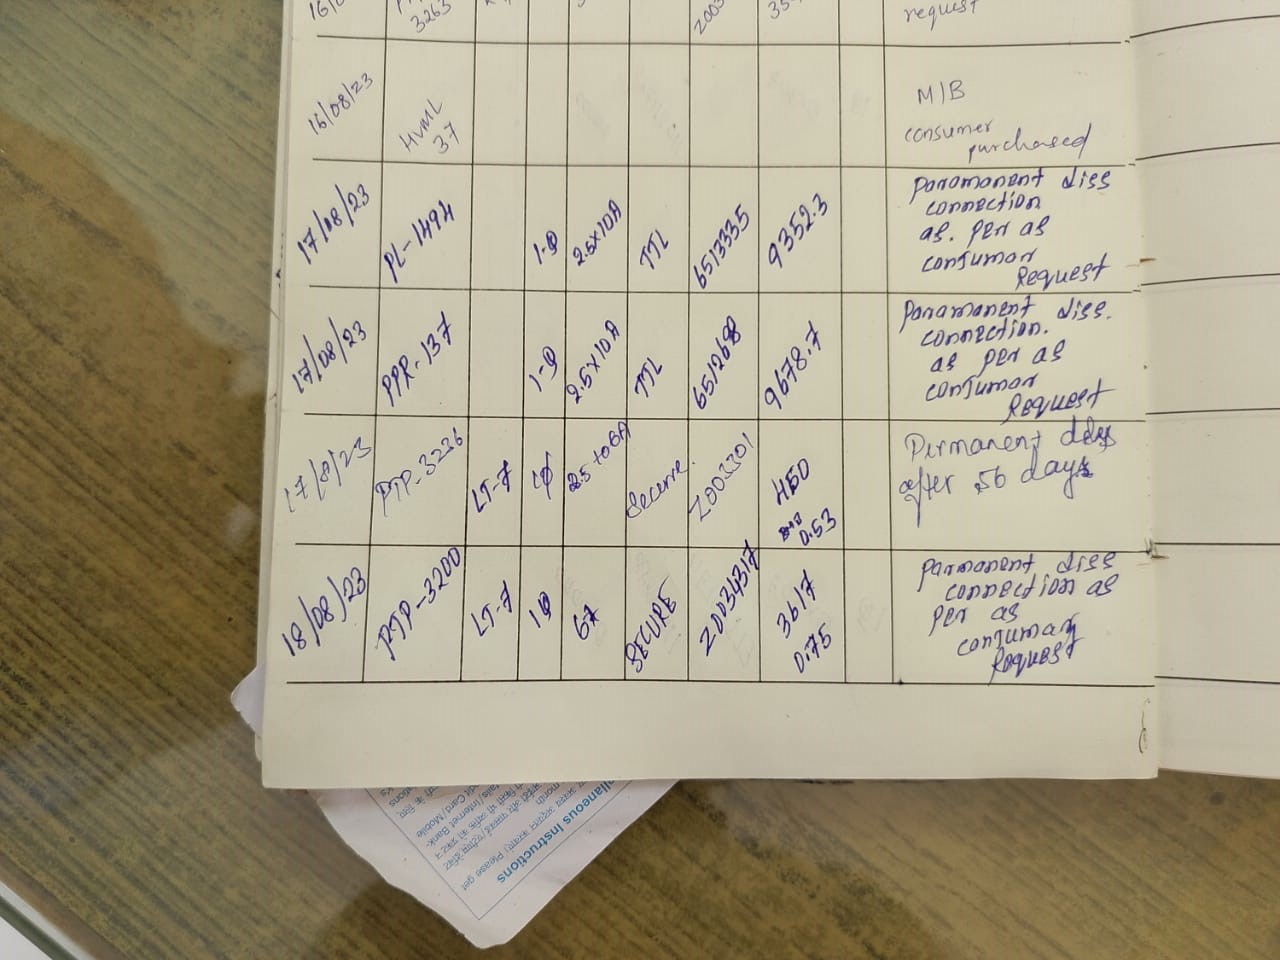 3263
request
16/08/23 HVML 37 M/B
consumer
purchased
17/08/23 PL-1494 1-Φ 2.5x10A TTL 6513335 9352.3 paramanent diss
connection
as. per as
consumar
Request
17/08/23 PPR-137 1-Φ 2.5x10A TTL 6512698 9678.7 paramanent diss.
connection.
as per as
consumar
Request
17/8/23 PTP-3236 LT-7 1Φ Secure Z003301 450 Permanent
0.53 after 56 days
18/08/23 RTP-3200 LT-7 1Φ 67 SECURE Z0034317 3617 parmanent diss
0.75 connection as
per as
consumar
Request
ellaneous Instructions
Please get
month
ails/Internet Bank-
dit Card/Mobile